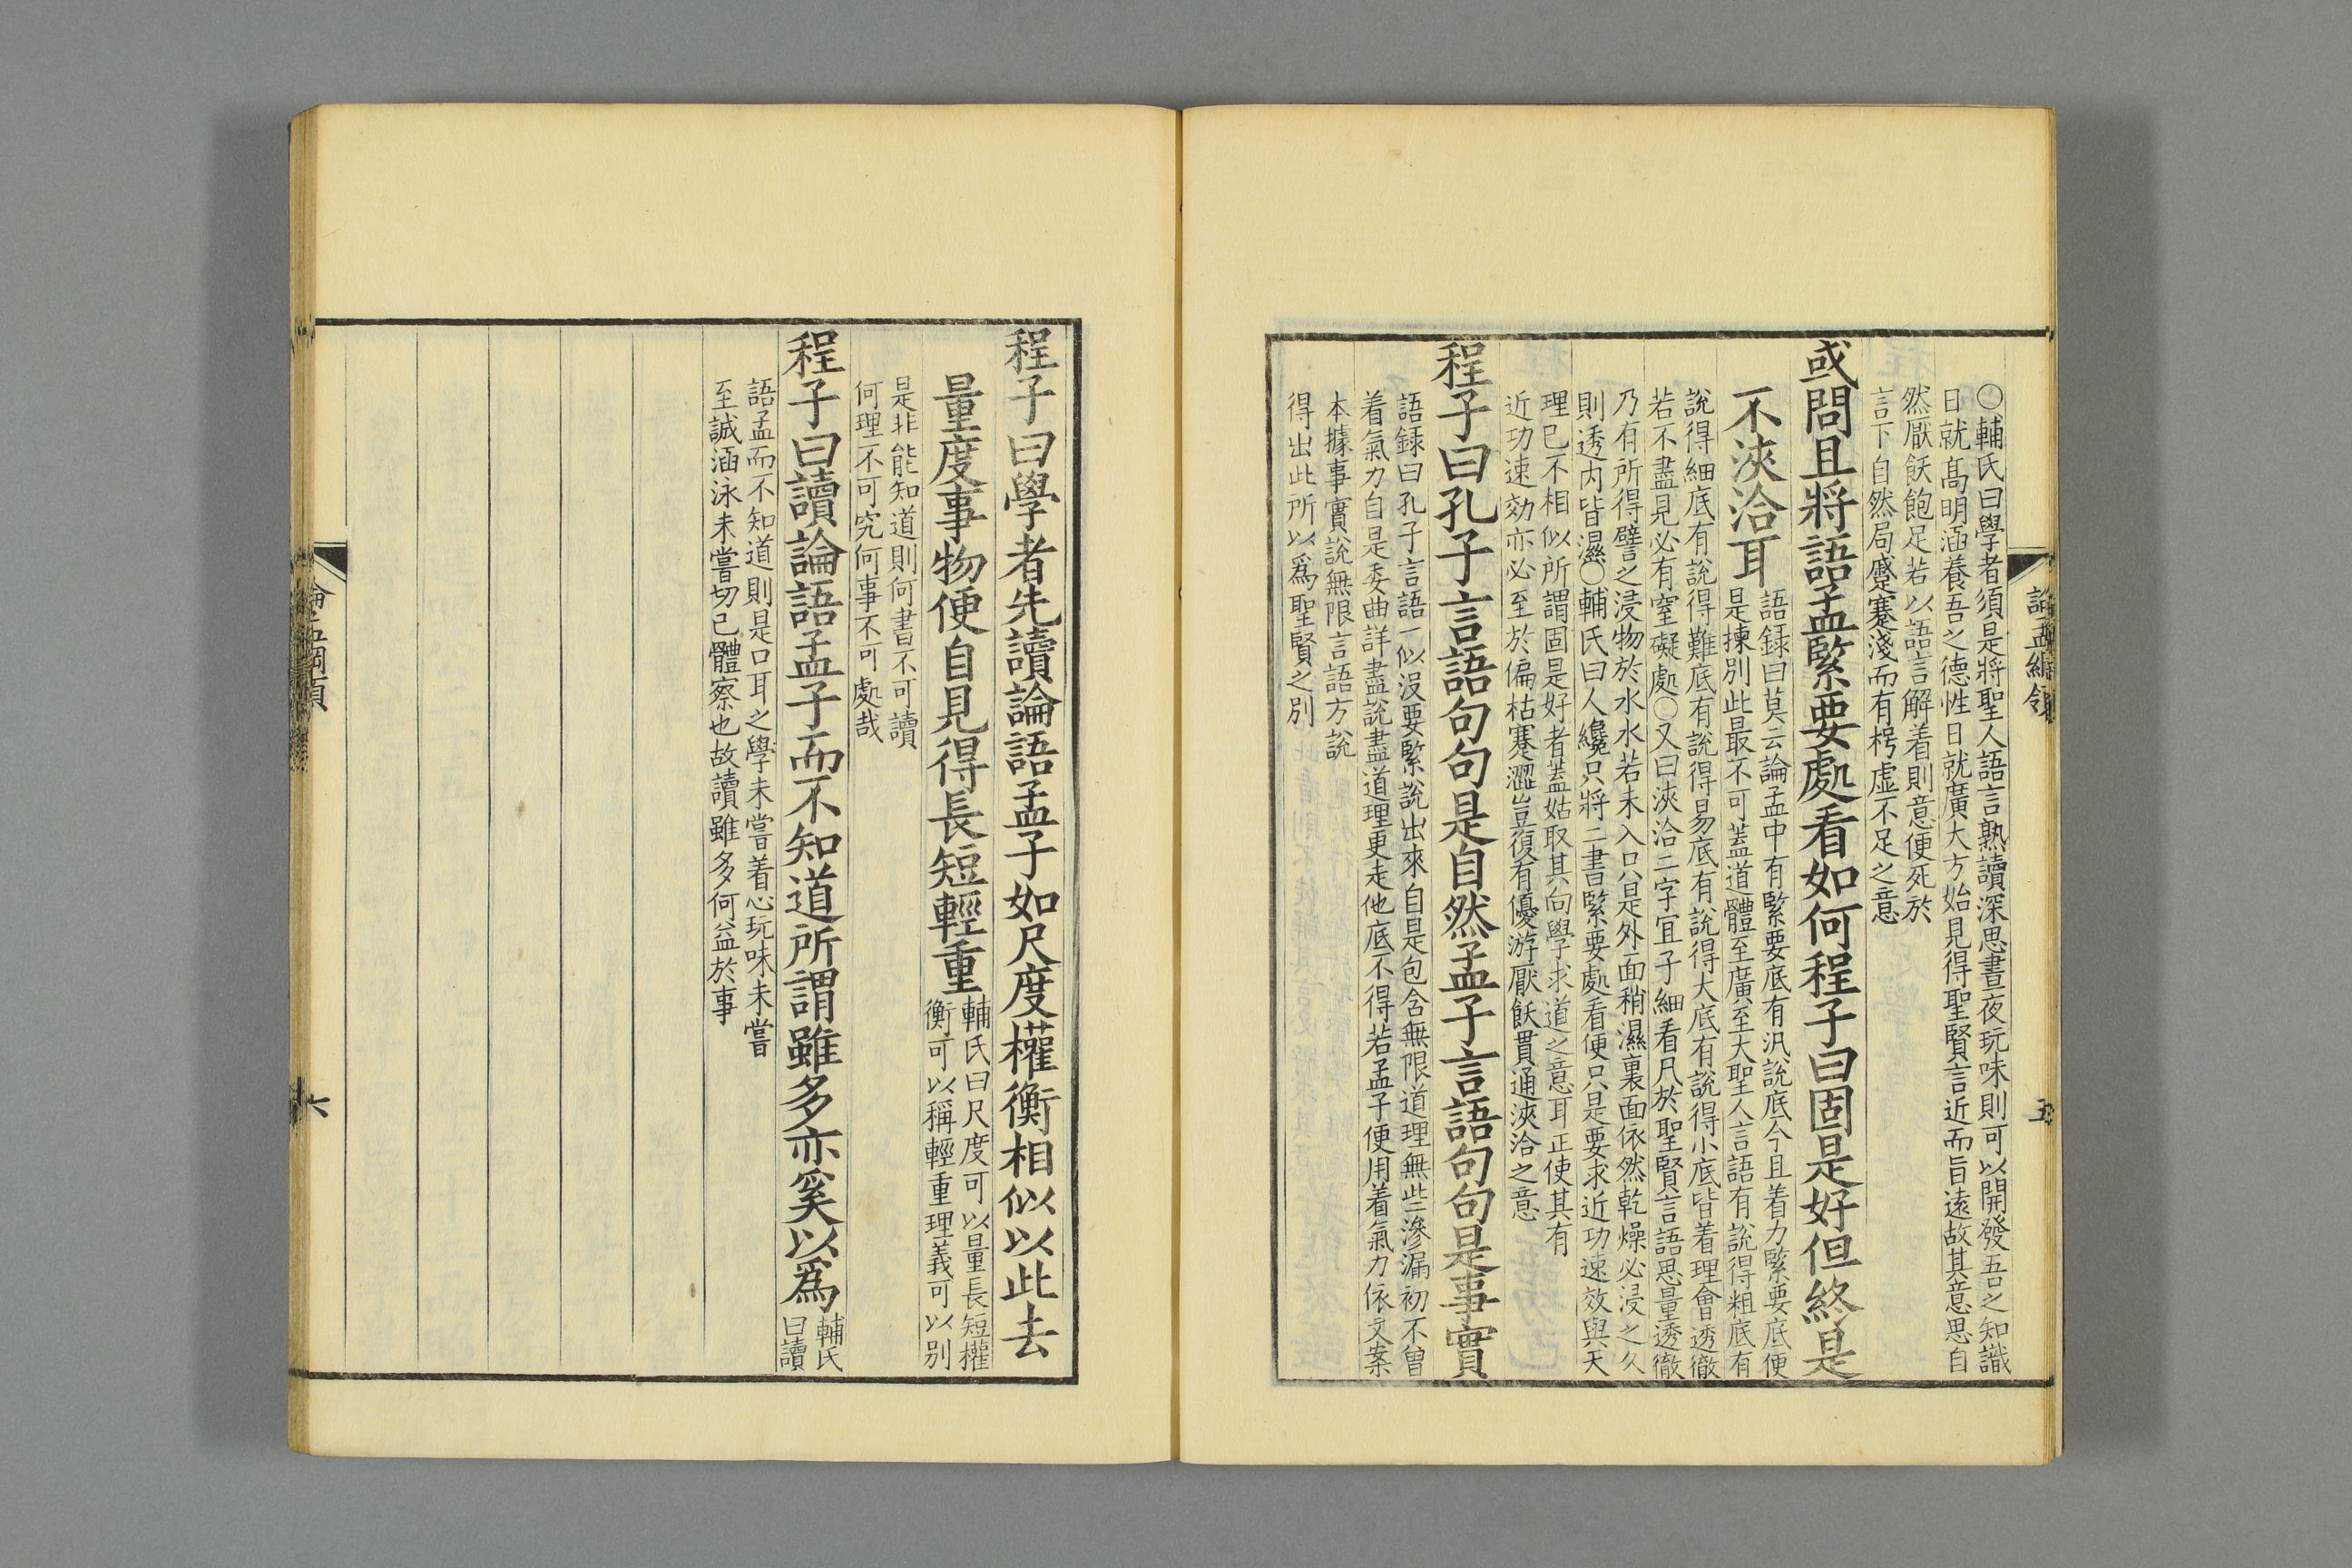 論孟綱領
五
〇輔氏曰學者須是將聖人語言熟讀深思晝夜玩味則可以開發吾之知識
日就高明涵養吾之德性日就廣大方始見得聖賢言近而旨遠故其意思自
然厭飫飽足若以語言解着則意便死於
言下自然局蹙蹇淺而有枵虛不足之意
或問且將語孟緊要處看如何程子曰固是好但終是
不浹洽耳
語錄曰莫云論孟中有緊要底有汎說底今且着力緊要底便
是揀別此最不可蓋道體至廣至大聖人言語有說得粗底有
說得細底有說得難底有說得易底有說得大底有說得小底皆着理會透徹
若不盡見必有窒礙處〇又曰浹洽二字宜子細看凡於聖賢言語思量透徹
乃有所得譬之浸物於水水若未入只是外面稍濕裏面依然乾燥必浸之久
則透内皆濕〇輔氏曰人纔只將二書緊要處看便只是要求近功速效與天
理已不相似所謂固是好者蓋姑取其向學求道之意耳正使其有
近功速効亦必至於偏枯蹇澀豈復有優游厭飫貫通浹洽之意
程子曰孔子言語句句是自然孟子言語句句是事實
語錄曰孔子言語一似没要緊說出來自是包含無限道理無些滲漏初不曾
着氣力自是委曲詳盡說盡道理更走他底不得若孟子便用着氣力依文案
本據事實說無限言語方說
得出此所以爲聖賢之別
程子曰學者先讀論語孟子如尺度權衡相似以此去
量度事物便自見得長短輕重
輔氏曰尺度可以量長短權
衡可以稱輕重理義可以別
是非能知道則何書不可讀
何理不可究何事不可處哉
程子曰讀論語孟子而不知道所謂雖多亦奚以爲
輔氏
曰讀
語孟而不知道則是口耳之學未嘗着心玩味未嘗
至誠涵泳未嘗切己體察也故讀雖多何益於事
六